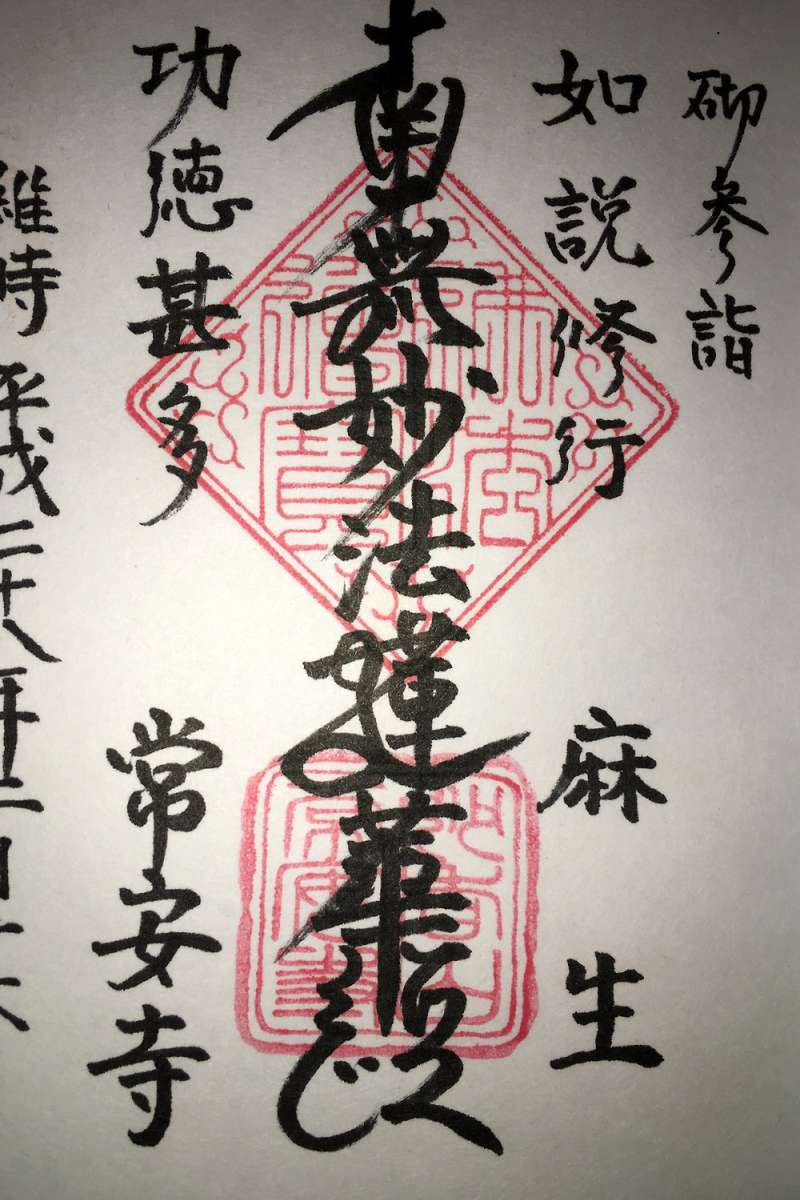 御参詣
如説修行
麻生
南無妙法蓮華経
功徳甚多
常安寺
維時 平成二十八年